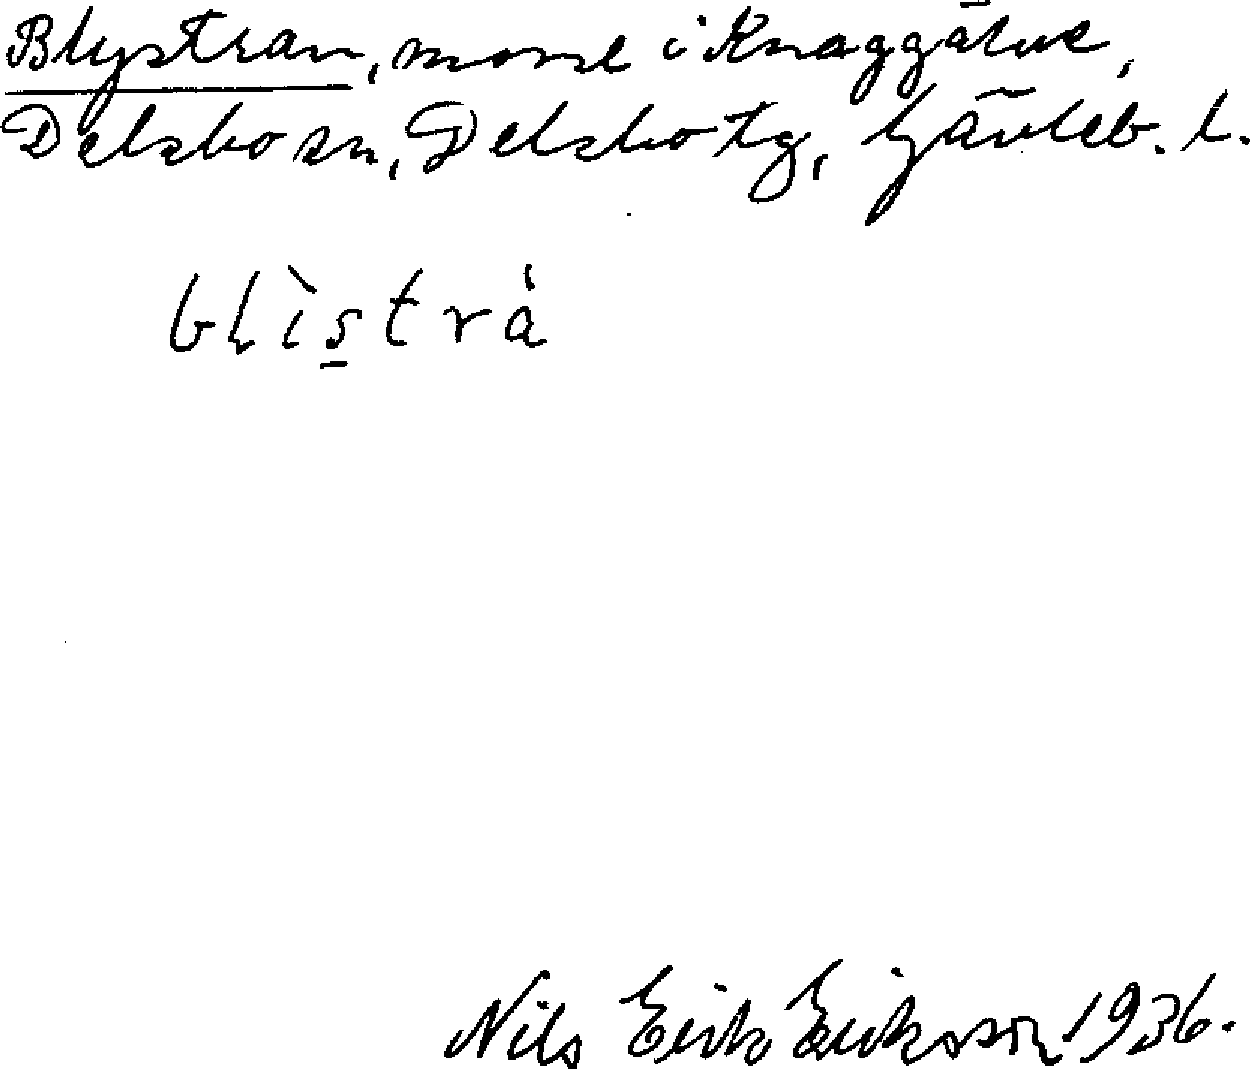 Blystran, mosse i Knaggälve,
Delsbo sn, Delsbo tg, Gävleb. l.
blìstrà
Nils Erik Eriksson 1936.